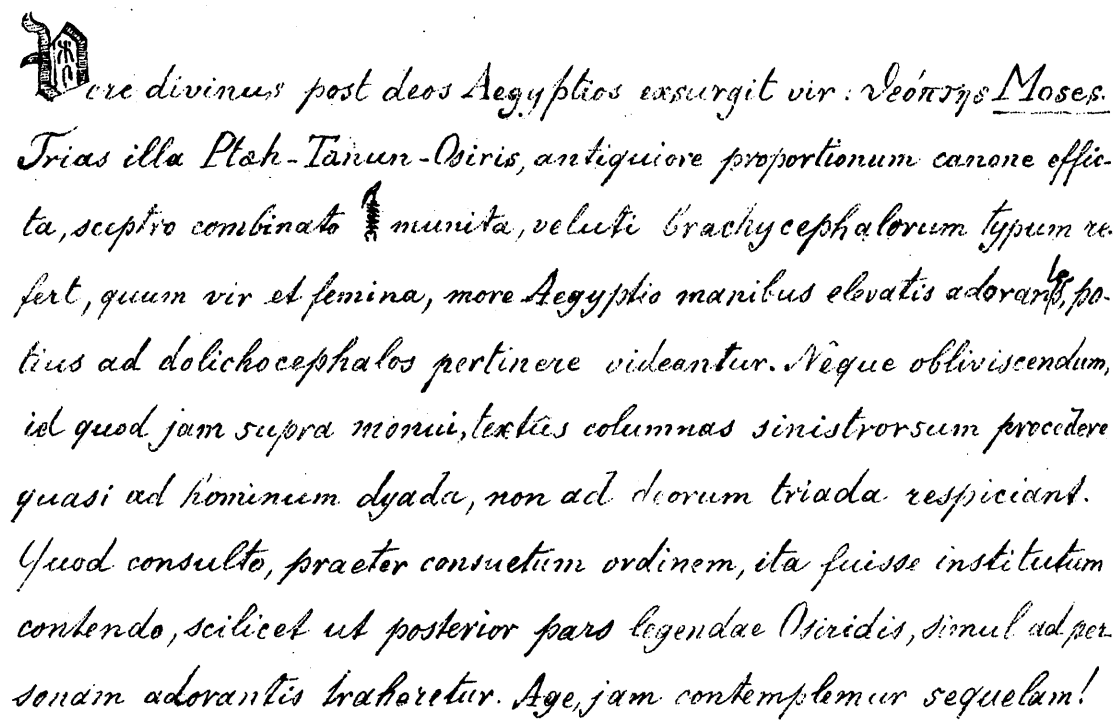 Vere divinus post deos Aegyptios exsurgit vir: θεόπτης Moses.
Trias illa Ptah-Tanun-Osiris, antiquiore proportionum canone effic-
ta, sceptro combinato munita, veluti brachycephalorum typum re-
fert, quum vir et femina, more Aegyptio manibus elevatis adorantes, po-
tius ad dolichocephalos pertinere videantur. Nêque obliviscendum,
id quod jam supra monui, textûs columnas sinistrorsum procedere
quasi ad hominum dyada, non ad deorum triada respiciant.
Quod consulto, praeter consuetum ordinem, ita fuisse institutum
contendo, scilicet ut posterior pars legendae Osiridis, simul ad per-
sonam adorantis traheretur. Age, jam contemplemur sequelam!